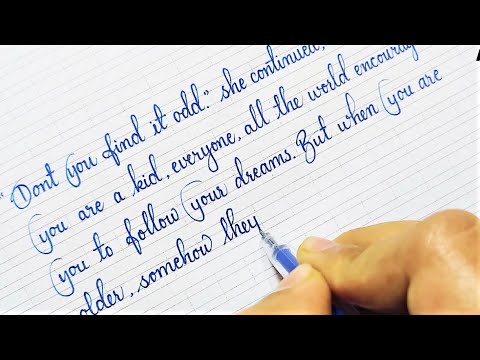 "Dont you find it odd." she continued,
you are a kid, everyone, all the world encourag
you to follow your dreams. But when you are
older, somehow they